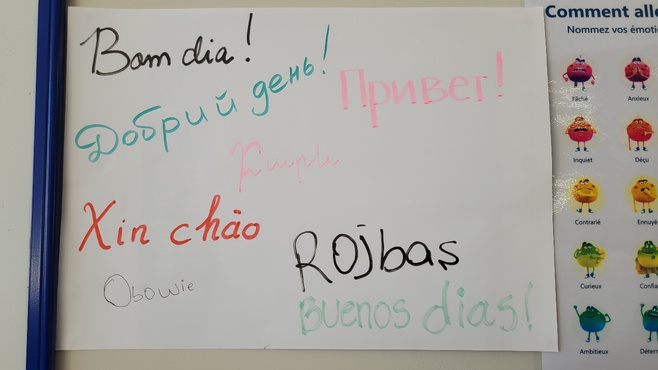 Bom dia!
Добрий день!
Привет!
Xin chào
Rojbaş
Obowie
Buenos dias!
Comment alle
Nommez vos émotio
Fâché
Anxieux
Inquiet
Déçu
Contrarié
Ennuyé
Curieux
Confia
Ambitieux
Déterm